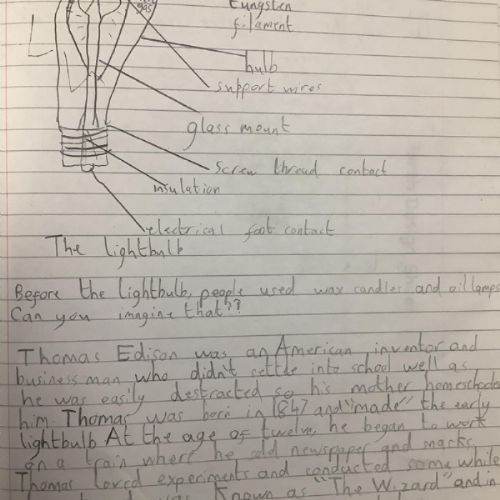 gas
tungsten
filament
bulb
support wires
glass mount
Screw thread contact
insulation
electrical foot contact
The lightbulb
Before the lightbulb, people used wax candles and oil lamps
Can you imagine that??
Thomas Edison was an American inventor and
business man who didn't settle into school well as
he was easily destracted so his mother homeschoole
him. Thomas was born in 1847 and "made" the early
lightbulb. At the age of twelve, he began to work
on a train where he sold newspaper and snacks.
Thomas loved experiments and conducted some while
was known as "The Wizard" and in